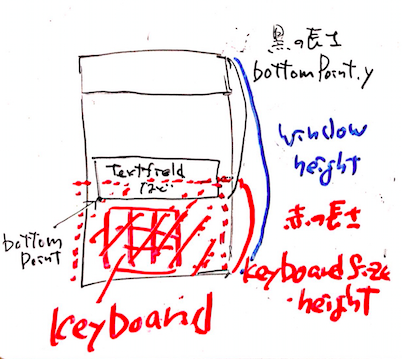 黒の長さ
bottomPoint.y
window
height
Textfield
bottom
Point
赤の長さ
keyboardSize
.height
keyboard